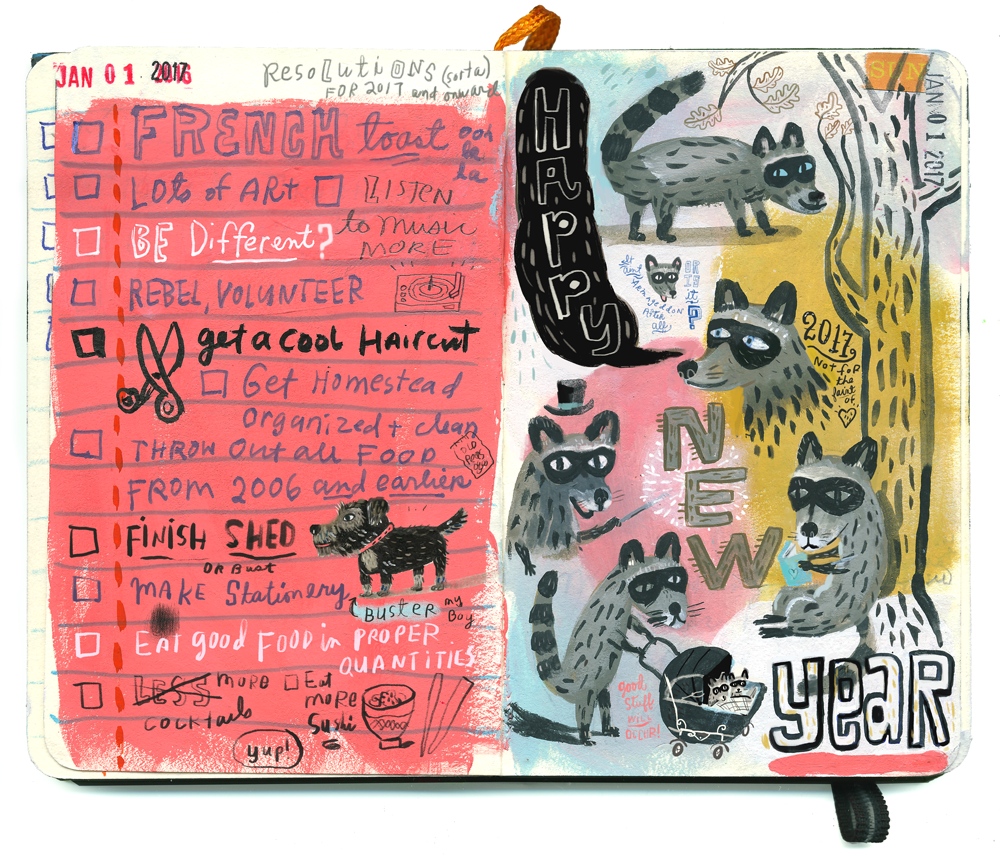 JAN 01 2017
Resolutions (sorta)
FOR 2017 and onward
FRENCH toast ooh
la
la
Lots of ART
LISTEN
to Music
MORE
BE Different?
REBEL, VOLUNTEER
get a cool Haircut
Get Homestead
Organized + clean
THROW Out all Food
FROM 2006 and earlier
FINISH SHED
OR Bust
MAKE Stationery
BUSTER my
Boy
Eat good Food in PROPER
QUANTITIES
LESS more
cocktails
yup!
Eat
more
Sushi
SUN
JAN 01 2017
Happy
It
ain't
Armageddon
After
all,
OR
is
it
2017
Not for
the
faint
of
NEW
good
stuff
will
OCCUR!
YEAR